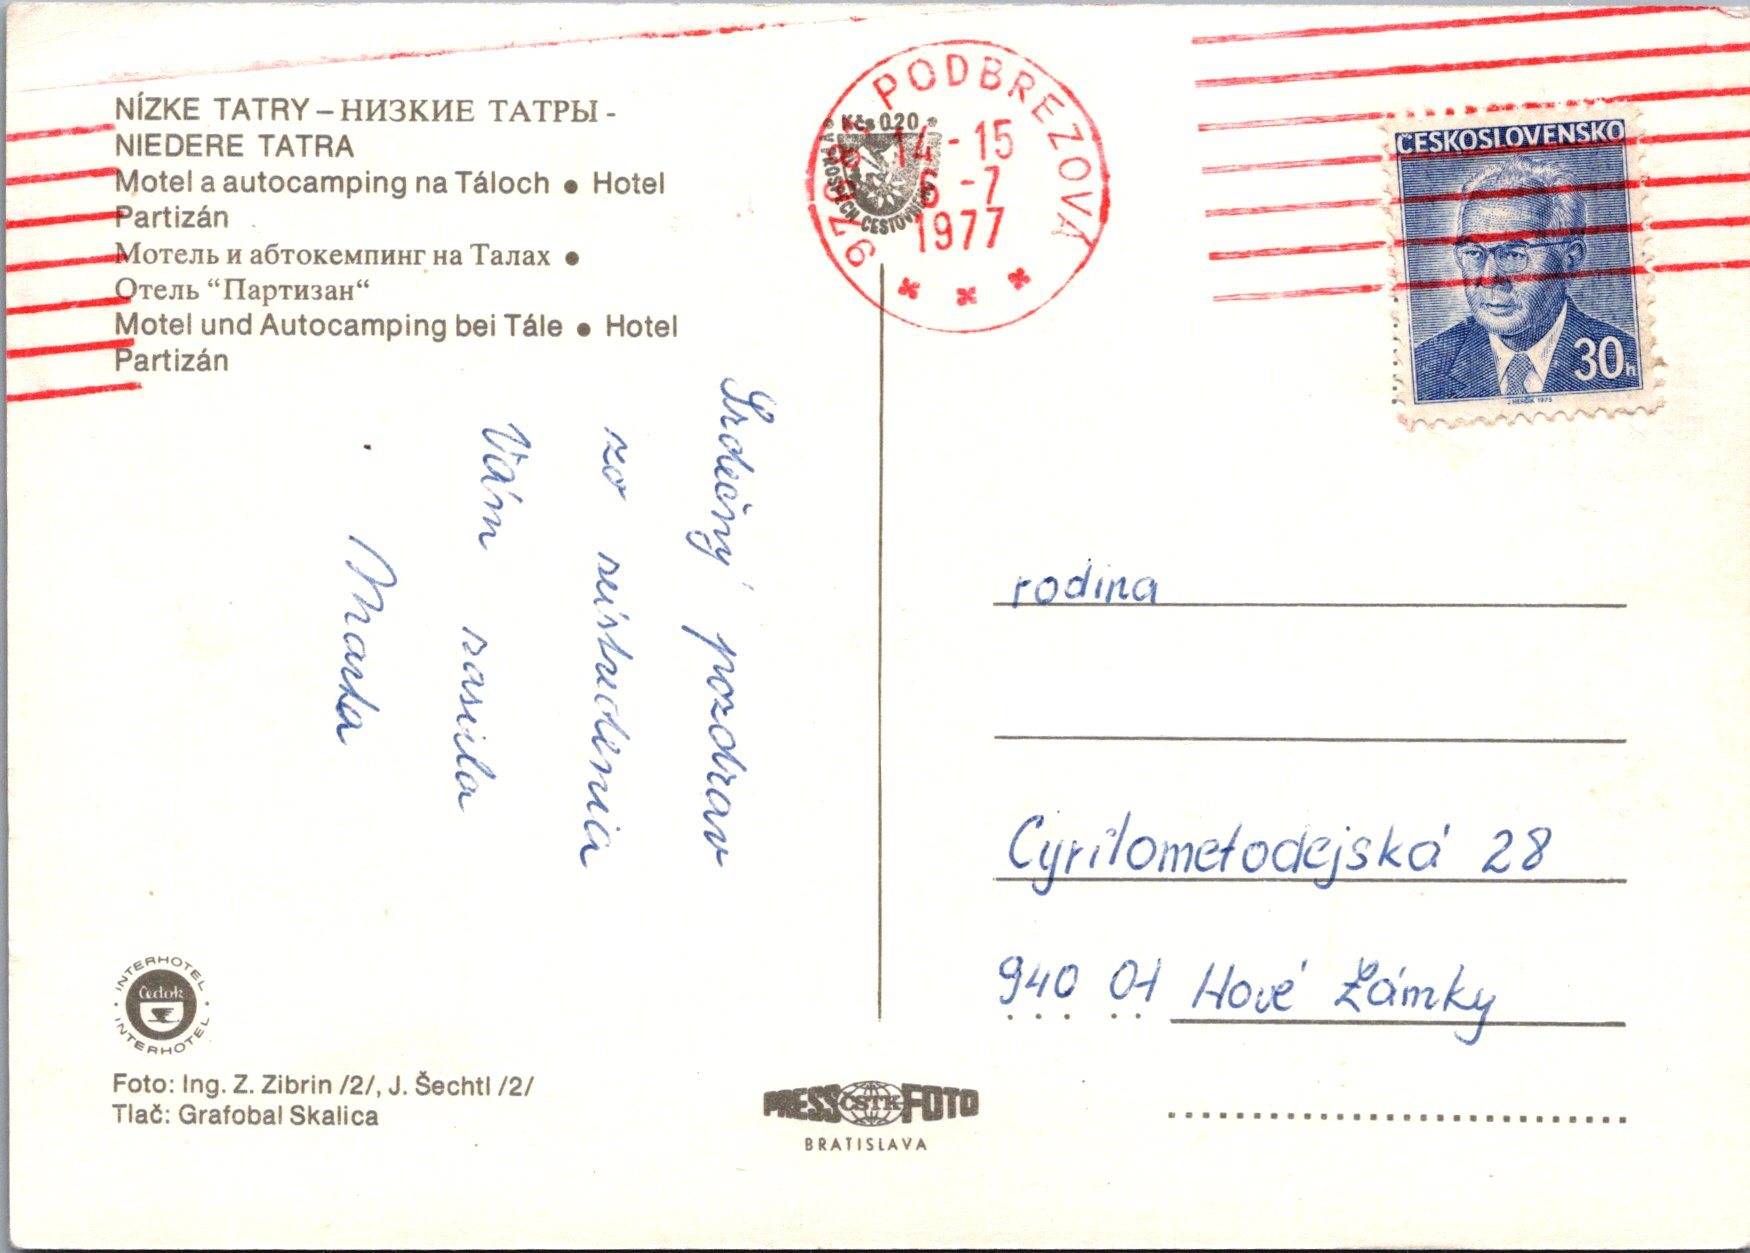 NÍZKE TATRY – НИЗКИЕ ТАТРЫ -
NIEDERE TATRA
Motel a autocamping na Táloch ● Hotel
Partizán
Мотель и абтокемпинг на Талах ●
Отель “Партизан“
Motel und Autocamping bei Tále ● Hotel
Partizán
Srdečný pozdrav
zo
Vám zasiela
Marta
INTERHOTEL
Čedok
INTERHOTEL
Foto: Ing. Z. Zibrin /2/, J. Šechtl /2/
Tlač: Grafobal Skalica
PRESS ČSTK FOTO
BRATISLAVA
PODBREZOVÁ
Kčs 0.20
14-15
6-7
1977
ČESKOSLOVENSKO
30h
J. HERČÍK 1975
rodina
Cyrilometodejská 28
940 01 Nové Zámky